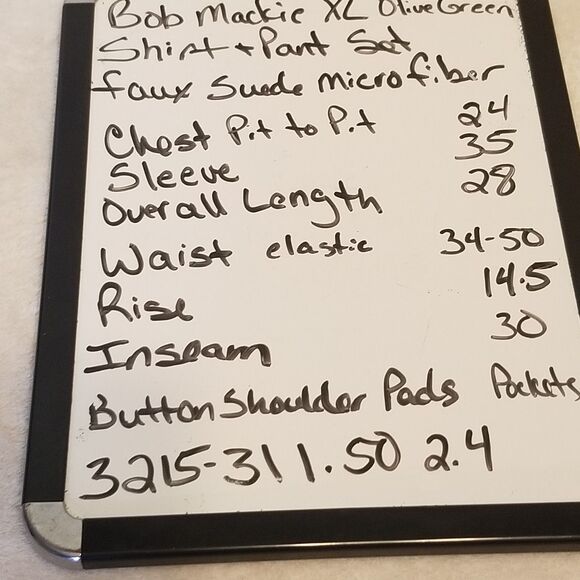 Bob Mackie XL Olive Green
Shirt + Pant Set
faux Suede microfiber
Chest Pit to Pit 24
Sleeve 35
Overall Length 28
Waist elastic 34-50
Rise 14.5
Inseam 30
Button Shoulder Pads Pockets
3215-311.50 2.4